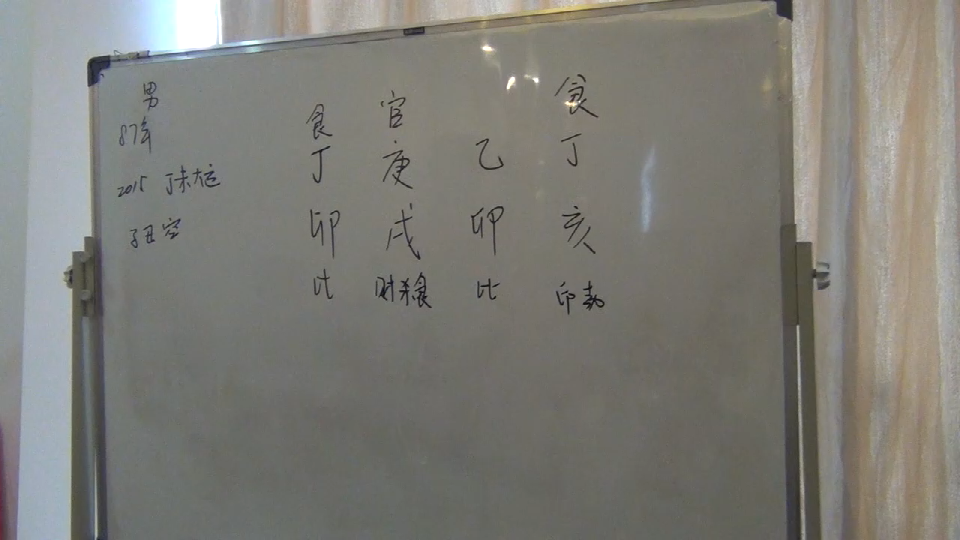 男
87年
2015 丁未大运
子丑空
食 官 食
丁 庚 乙 丁
卯 戌 卯 亥
比 财杀食 比 印劫